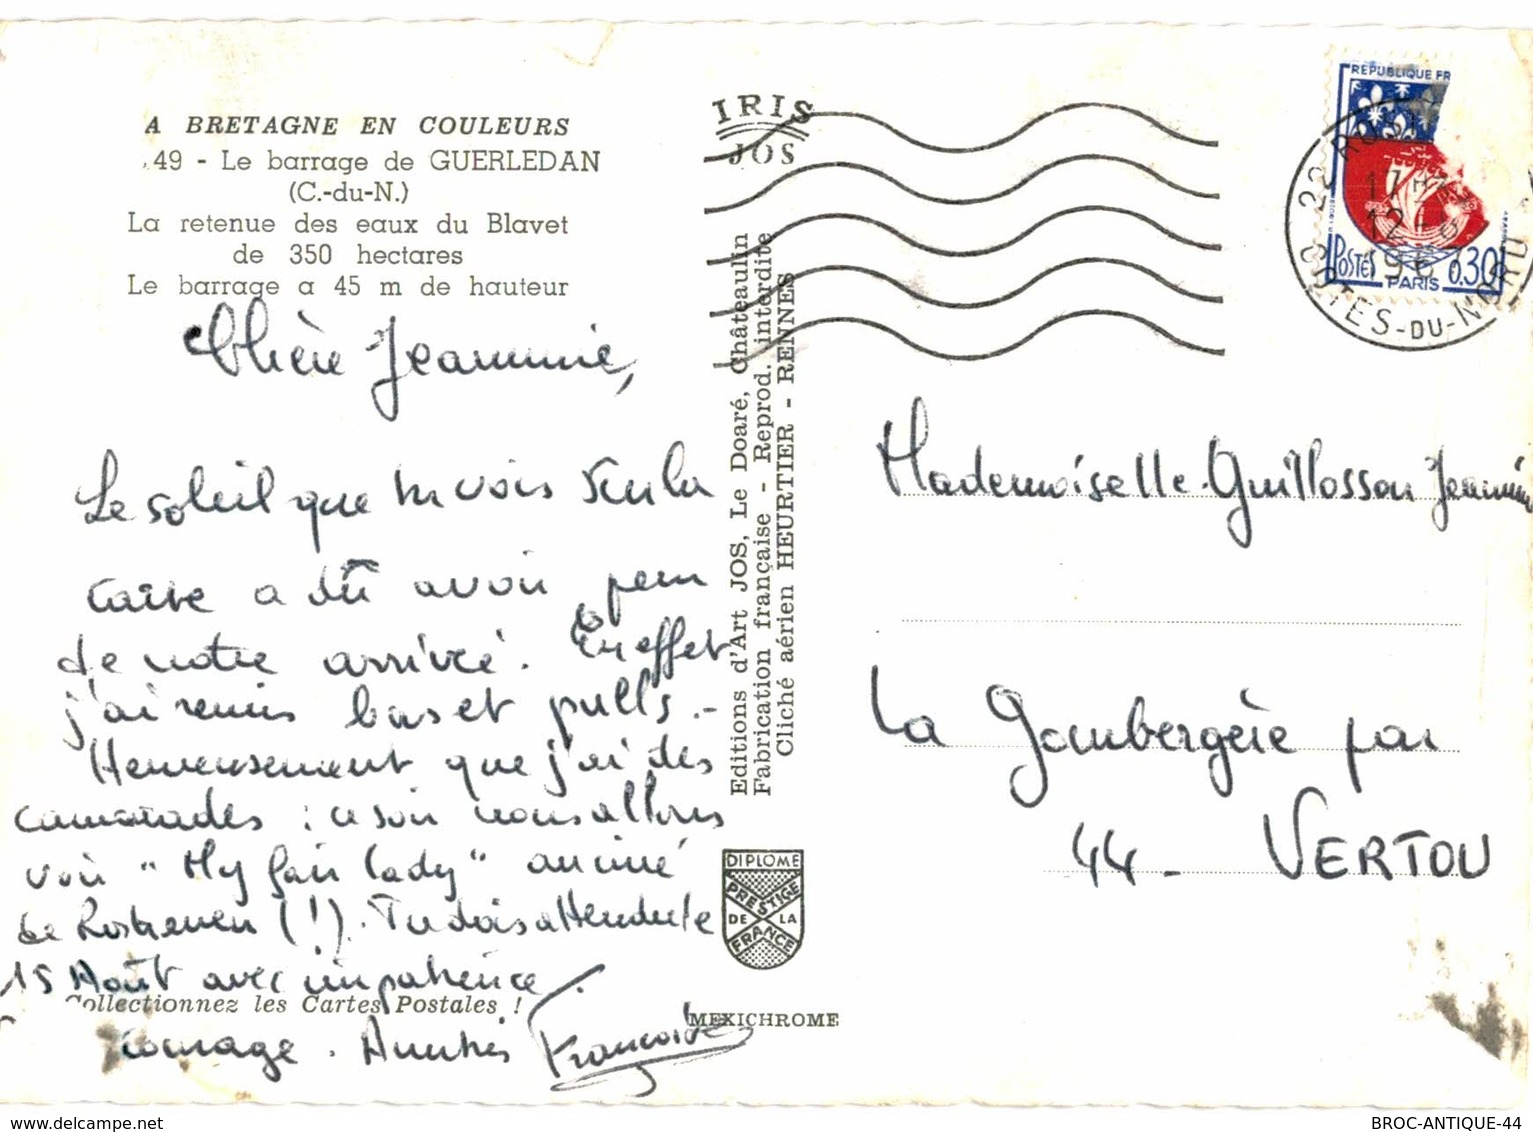 A BRETAGNE EN COULEURS
49 - Le barrage de GUERLEDAN
(C.-du-N.)
La retenue des eaux du Blavet
de 350 hectares
Le barrage a 45 m de hauteur
Chère Jeannine,
Le soleil que tu vois sur la
carte a dû avoir peur
de notre arrivée. En effet
j'ai remis bas et pulls.-
Heureusement que j'ai des
camarades : ce soir nous allons
voir "My fair lady" au ciné
de Rostrenen (!). Tu dois attendre le
15 Août avec impatience.
Collectionnez les Cartes Postales !
courage. Amitiés Françoise
IRIS
JOS
Editions d'Art JOS, Le Doaré, Châteaulin
Fabrication française - Reprod. interdite
Cliché aérien HEURTIER - RENNES
DIPLOME
PRESTIGE
DE LA
FRANCE
MEXICHROME
REPUBLIQUE FR
POSTES 0.30
PARIS
22 ROS
17 H
12 -8
196
COTES-DU-NORD
Mademoiselle Guillosson Jeannine
La Gaubergère par
44 - VERTOU
BROC-ANTIQUE-44